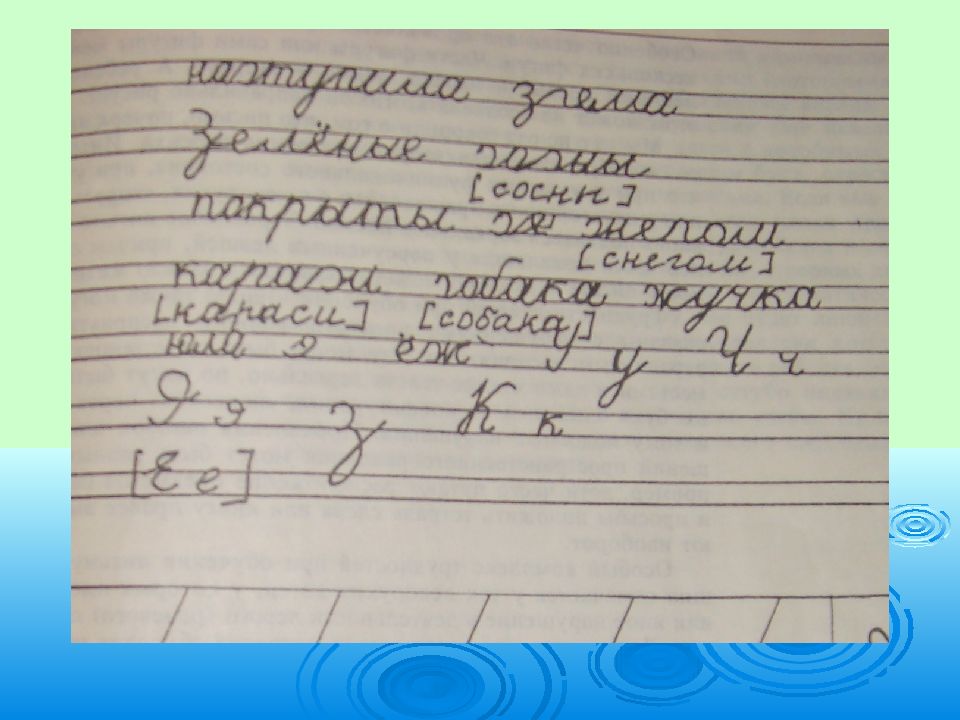 наступила згема
Зелёные сосны
[сосны]
покрыты снегом
[снегом]
караси собака жучка
[караси] [собака]
юла я ёж У у Ч ч
Я я З К к
[Е е]